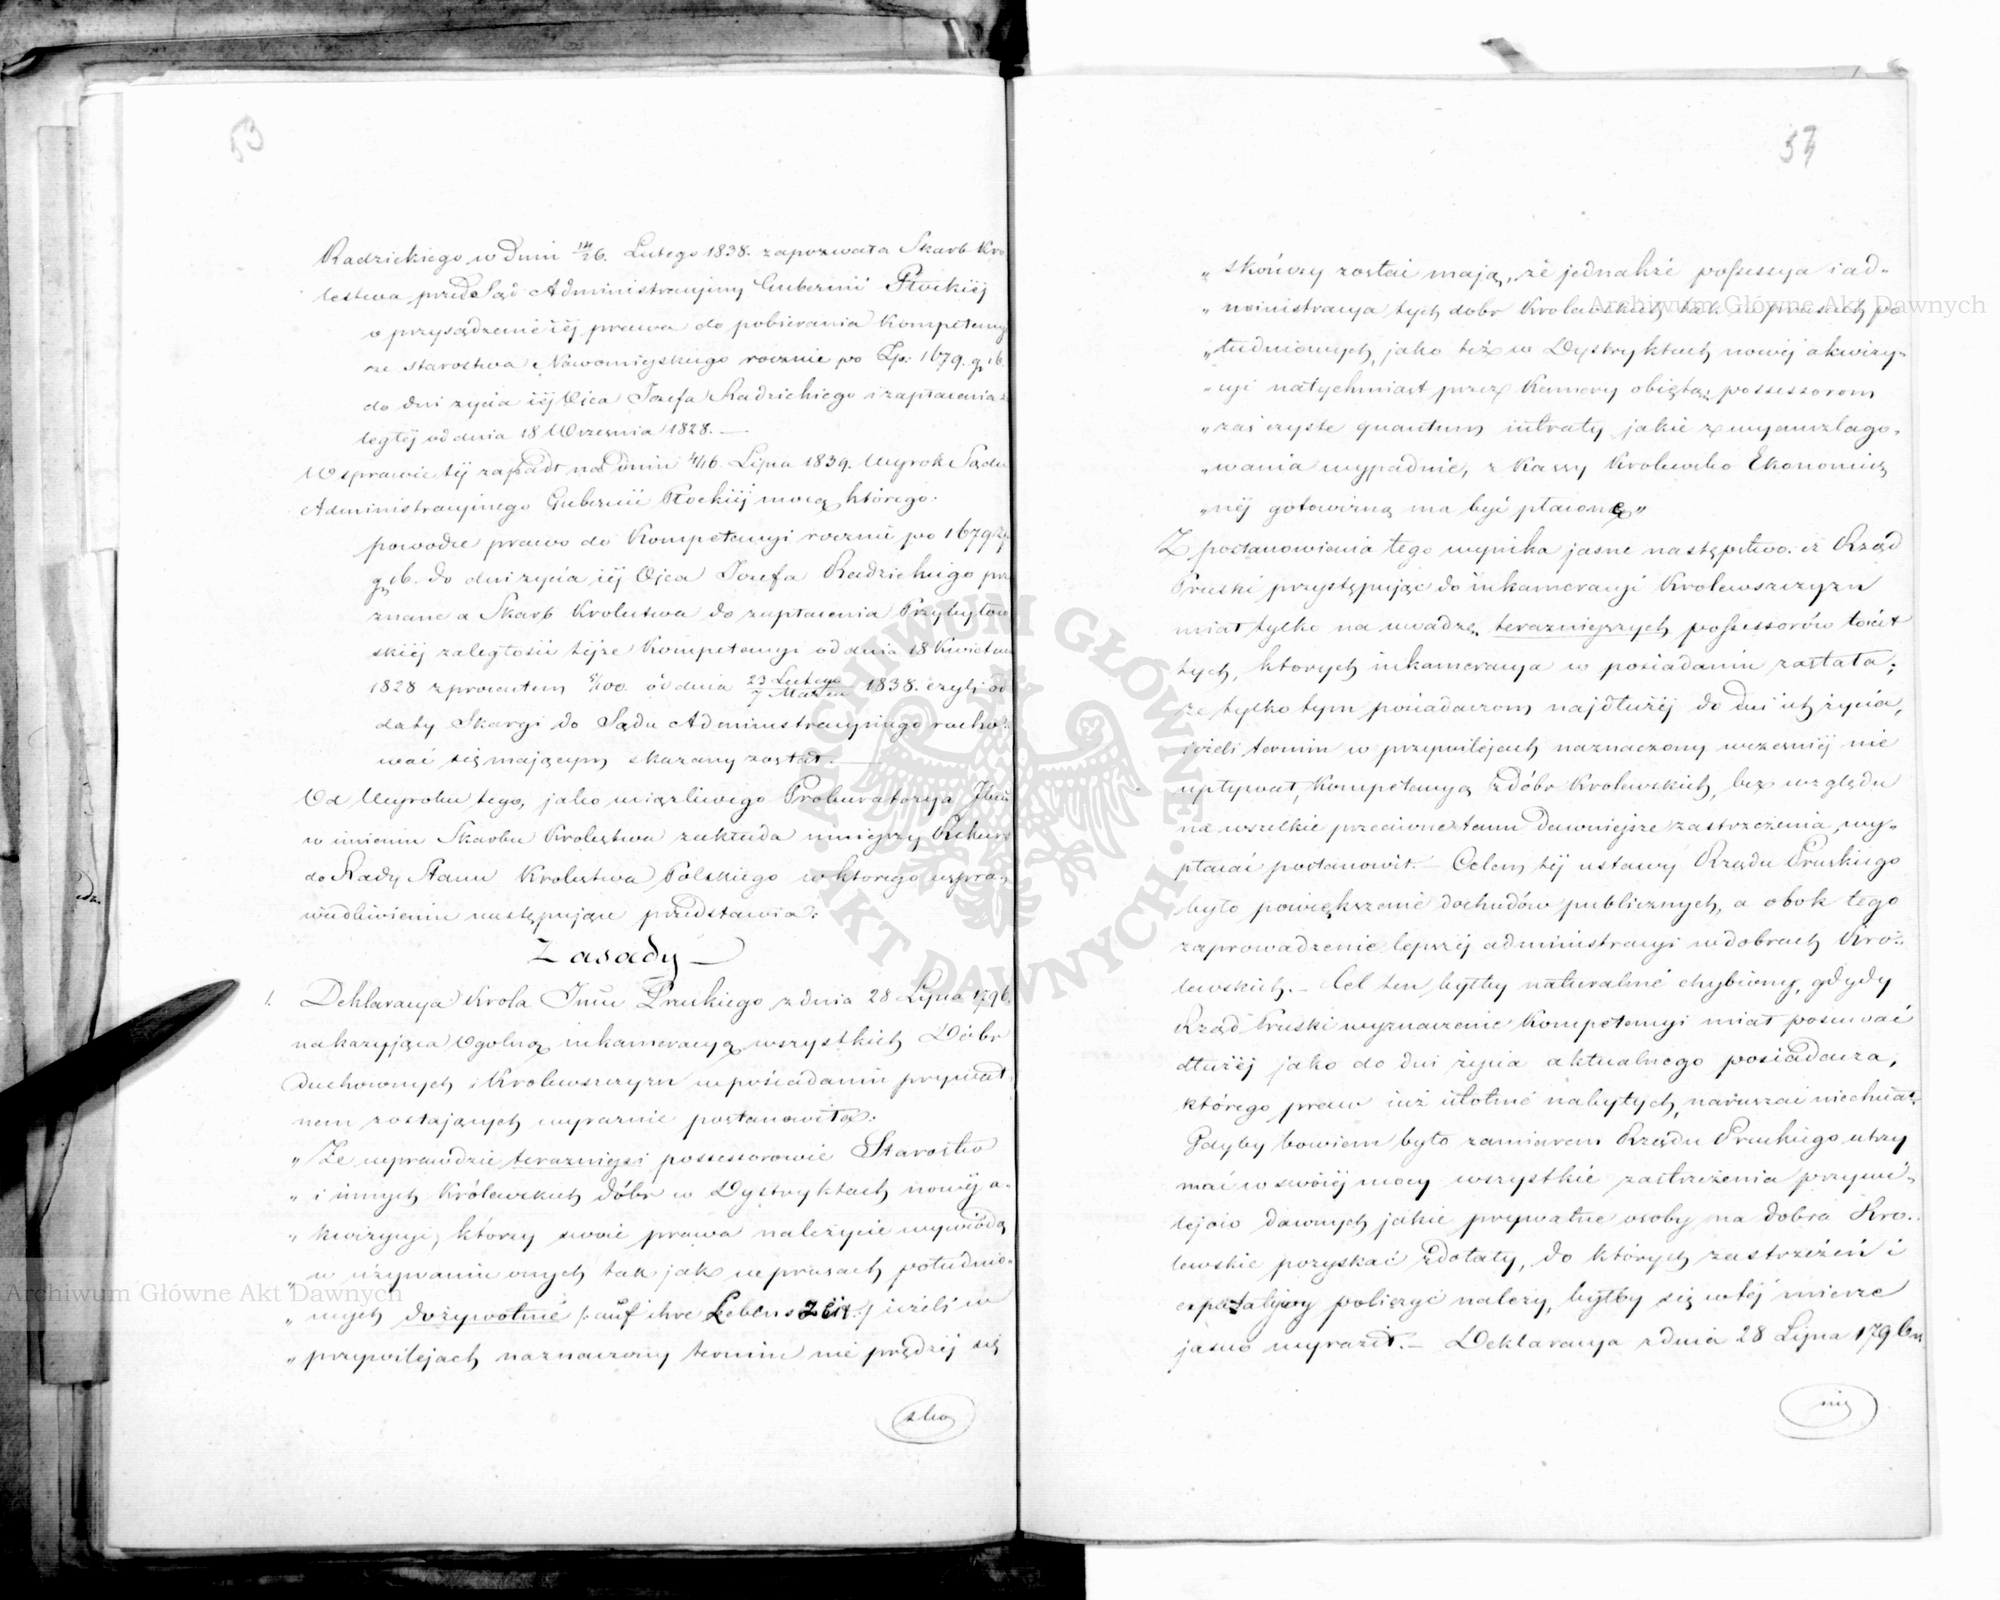 53
Radzickiego w dniu 14/26. Lutego 1838. zapozwała Skarb Kró
lestwa przed Sąd Administracyiny Gubernii Płockiéj
o przysądzenie iéj prawa do pobierania Kompetencyi
ze starostwa Nowomiyskiego rocznie po Zp: 1679. g. 16.
do dni zycia iéj Ojca Jozefa Radzickiego i zapłacenia za
ległéj od dnia 18 Września 1828. —
W sprawie téj zapadł na dniu 4/16. Lipca 1839. Wyrok Sądu
Administracyinego Gubernii Płockiéj mocą którego.
powodce prawo do Kompetencyi rocznie po 1679 Zp
g. 16. do dni zycia iéj Ojca Jozefa Radzickiego przy
znane a Skarb Krolestwa do zapłacenia Przybyłow
skiéj zaległości téjże Kompetencyi od dnia 18 Kwietnia
1828 z procentem 5/100. od dnia 23 Lutego / 7 Marca 1838. czyli od
daty Skargi do Sądu Administracyinego racho-
wać się mającym skazany został. —
Od Wyroku tego, jako uciążliwego Prokuratorya Jlna
w imieniu Skarbu Krolestwa zakłada ninieyszy Rekurs
do Rady Stanu Krolestwa Polskiego w ktorego uspra-
wiedliwieniu następujące przedstawia:
Zasady —
1. Deklaracya Krola Jmći Pruskiego z dnia 28 Lipca 1796
nakazująca Ogolną inkameracyą wszystkich Dóbr
duchownych i Krolewszczyzn w posiadaniu prywat
nem zostających wyraznie postanowiła:
„ Ze wprawdzie terazniejsi possessorowie Starostw
„ i innych Królewskich dóbr w Dystryktach nowéj a-
„ kwizycyi, którzy swoie prawa należycie wywiodą
„ w używaniu onych tak jak w prusach południo-
„ wych dożywotnie /: auf ihre Lebens Zeit :/ ieżeli w
„ przywilejach naznaczony termin nie prędzéj się
sko
57
„ skończy zostać mają, że jednakże possessya i ad-
„ ministracya tych dobr Krolewskich tak w prusach po
„ łudniowych, jako też w Dystryktach nowéj akwizy-
„ cyi natychmiast przez Kamery obiętą, possessorom
„ zaś czyste quantum intraty jakie z wyanszlago-
„ wania wypadnie, z Kassy Krolewsko Ekonomicz
„ néj gotowizną ma być płacone„
Z postanowienia tego wynika jasne następstwo. iż Rząd
Pruski przystępując do inkameracyi Krolewszczyzn
miał tylko na uwadze, terazniejszych possessorów to iest
tych, ktorych inkameracya w posiadaniu zastała;
że tylko tym posiadaczom najdłużéj do dni ich życia,
ieżeli termin w przywilejach naznaczony wcześniéj nie
upływał, Kompetencyą z dóbr Krolewskich, bez względu
na wszelkie przeciwne temu dawniejsze zastrzeżenia, wy-
płacać postanowił. — Celem téj ustawy Rządu Pruskiego
było powiększenie dochodów publicznych, a obok tego
zaprowadzenie lepszéj administracyi w dobrach Kro-
lewskich. — Cel ten byłby naturalnie chybiony, gdyby
Rząd Pruski wyznaczenie Kompetencyi miał posuwać
dłużéj jako do dni życia aktualnego posiadacza,
którego praw już istotnie nabytych, naruszać niechciał.
Gdyby bowiem było zamiarem Rządu Pruskiego utrzy
mać w swoiéj mocy wszystkie zastrzeżenia przywi-
lejów dawnych jakie prywatne osoby na dobra Kro-
lewskie pozyskać zdołały, do których zastrzeżeń i
expektatywy policzyć należy, byłby się w téj mierze
jasno wyraził. — Deklaracya z dnia 28 Lipca 1796 n
nie
Archiwum Główne Akt Dawnych
Archiwum Główne Akt Dawnych
ARCHIWUM GŁÓWNE
AKT DAWNYCH